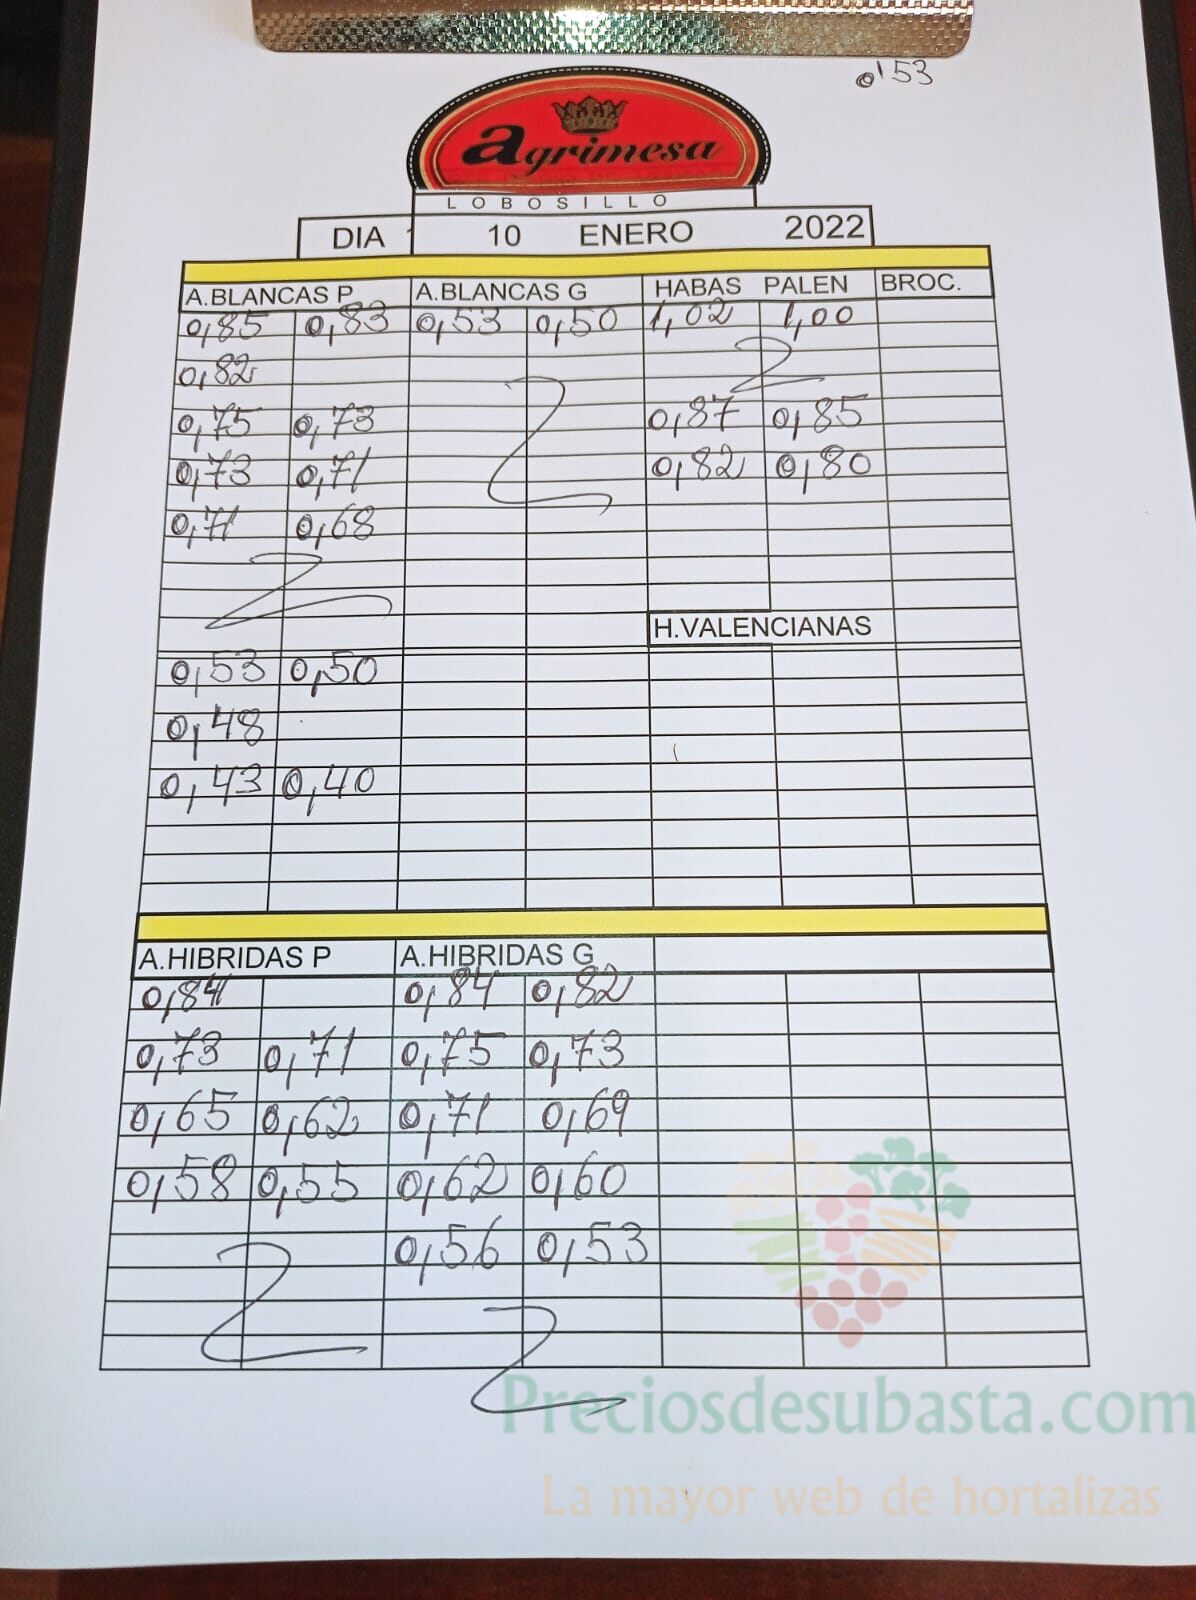 0'53
agrimesa
LOBOSILLO
DIA 10 ENERO 2022
A.BLANCAS P A.BLANCAS G HABAS PALEN BROC.
0,85 0,83 0,53 0,50 1,02 1,00
0,82
0,75 0,73 0,87 0,85
0,73 0,71 0,82 0,80
0,71 0,68
H.VALENCIANAS
0,53 0,50
0,48
0,43 0,40
A.HIBRIDAS P A.HIBRIDAS G
0,84 0,84 0,82
0,73 0,71 0,75 0,73
0,65 0,62 0,71 0,69
0,58 0,55 0,62 0,60
0,56 0,53
Preciosdesubasta.com
La mayor web de hortalizas